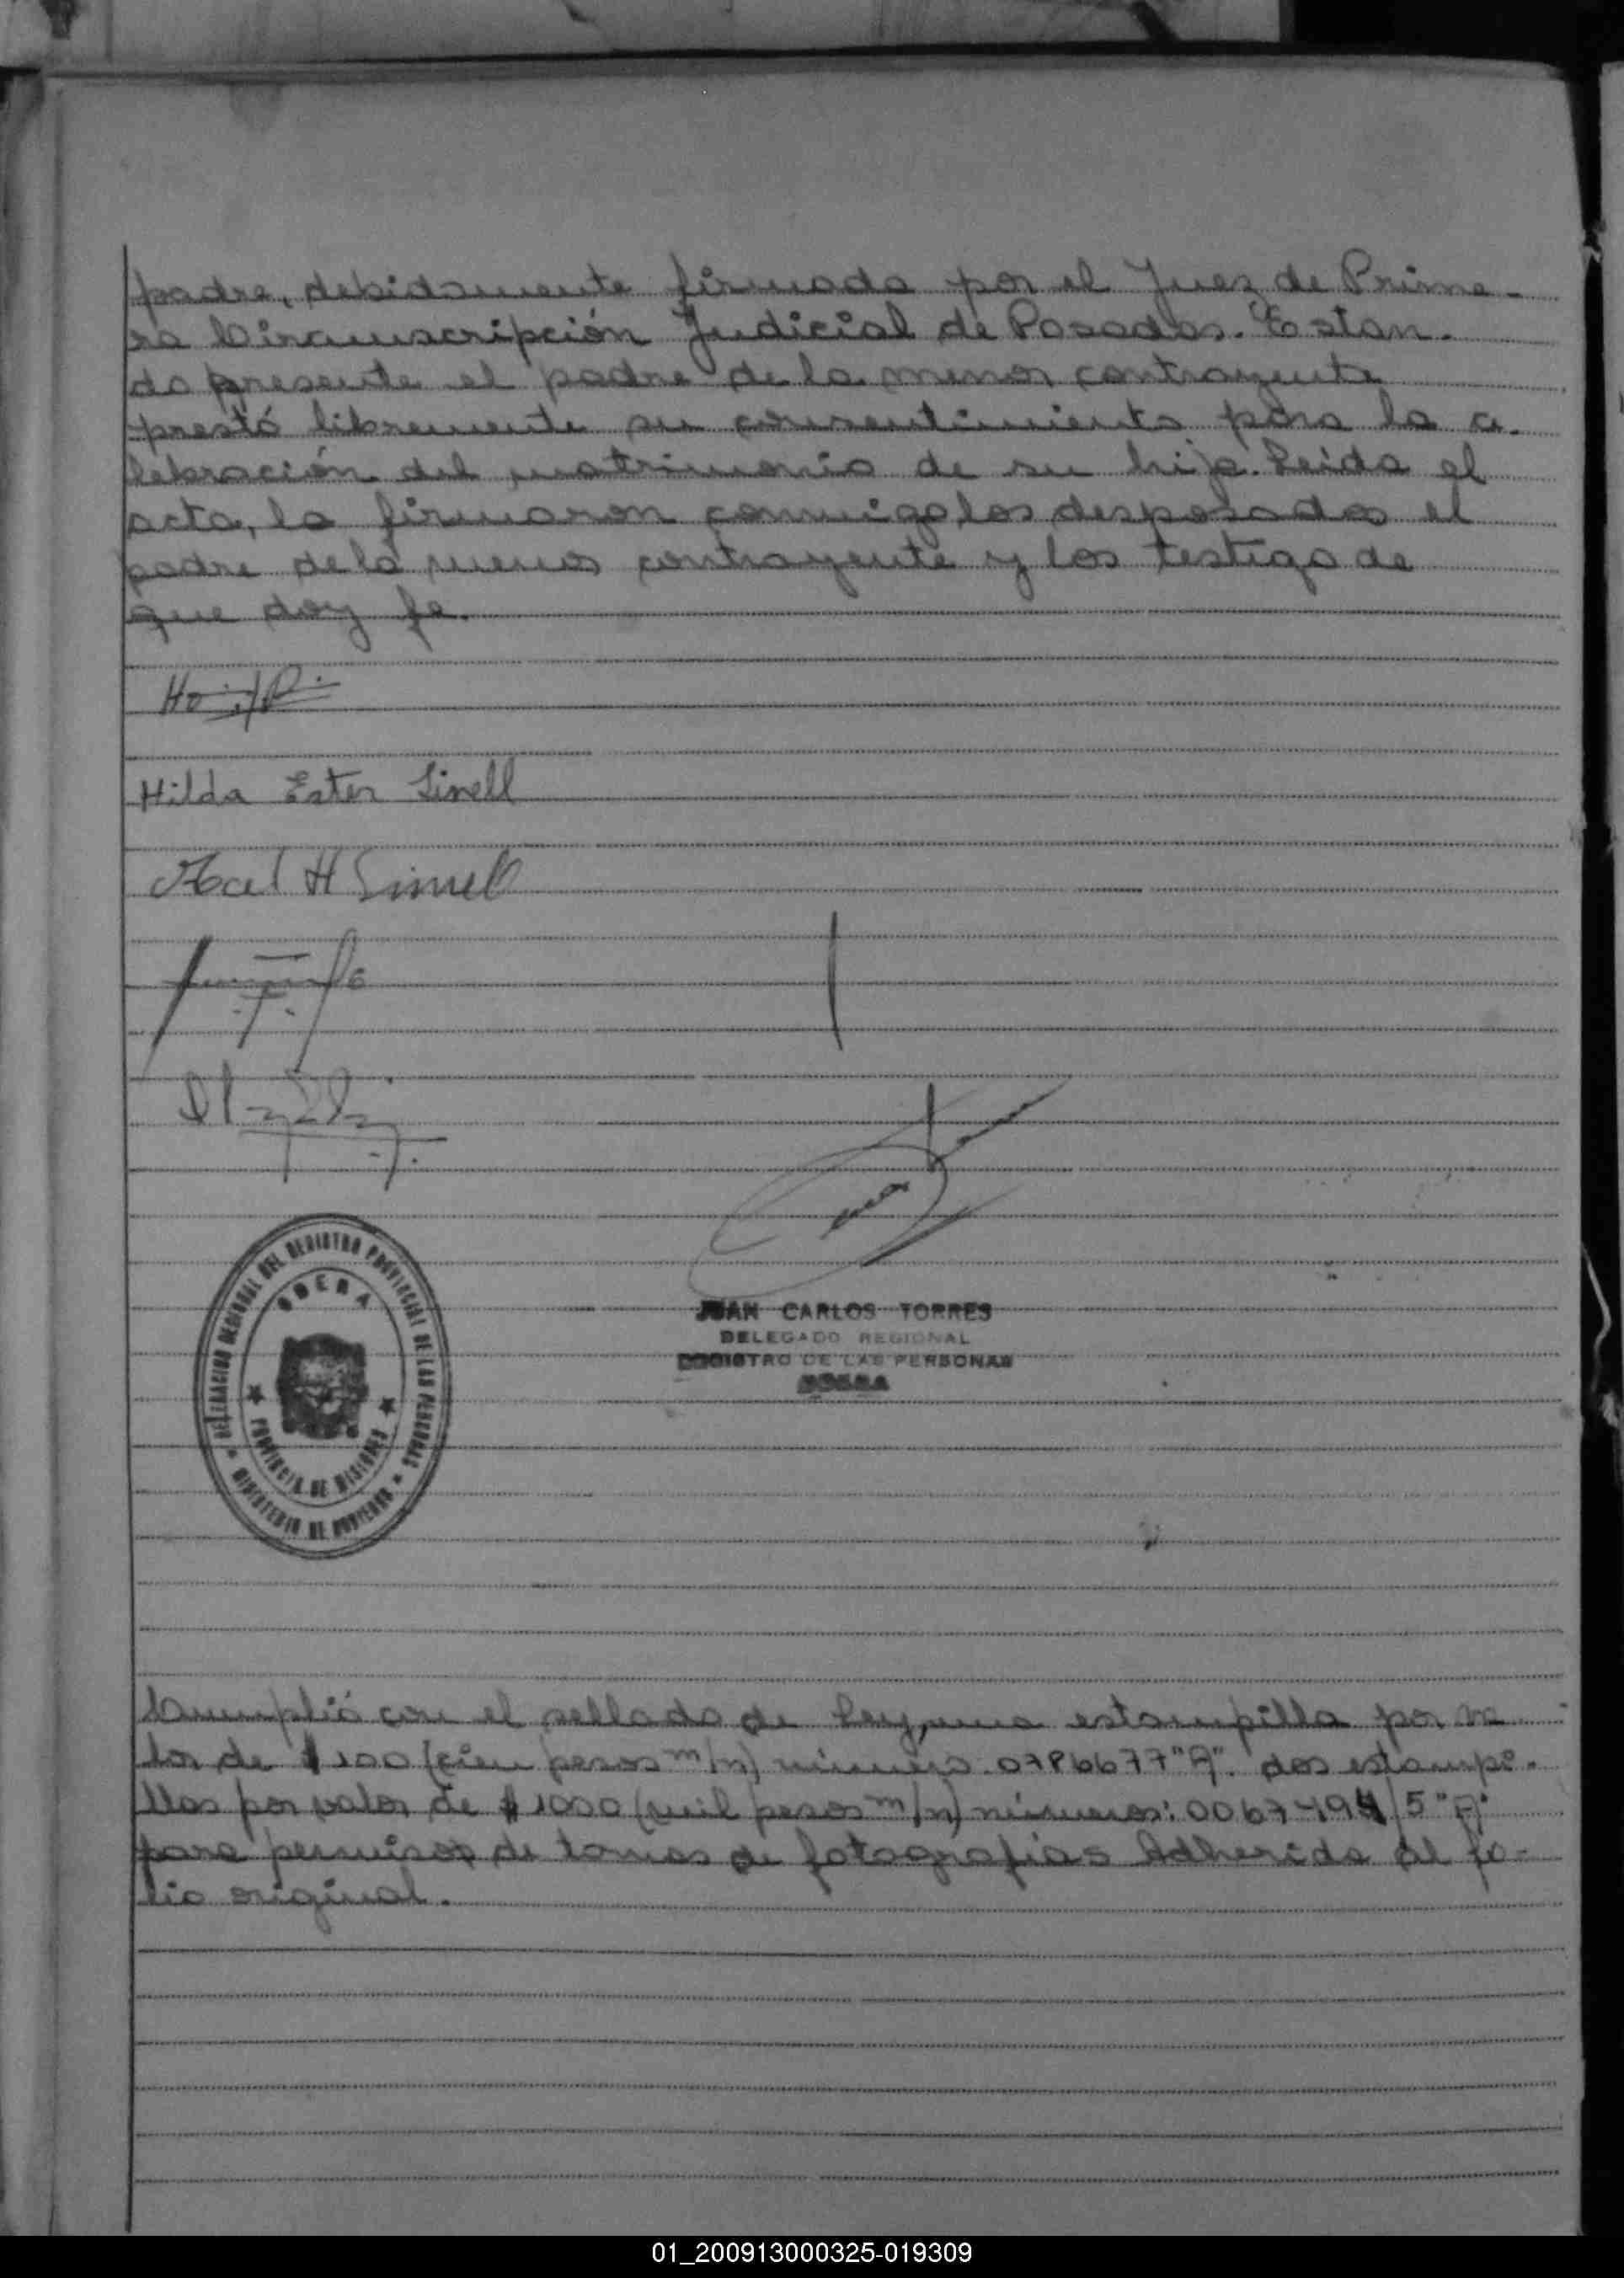 padre, debidamente firmada por el Juez de Prime-
ra Circunscripción Judicial de Posadas. Estan-
do presente el padre de la menor contrayente
prestó libremente su consentimiento para la ce-
lebración del matrimonio de su hija. Leida el
acta, la firmaron conmigo, los desposados el
padre de la menor contrayente y los testigo de
que doy fe.
Hilda Ester Sinell
H Sinell
DELEGACION REGIONAL DEL REGISTRO PROVINCIAL DE LAS PERSONAS
OBERA
PROVINCIA DE MISIONES
MINISTERIO DE GOBIERNO
JUAN CARLOS TORRES
DELEGADO REGIONAL
REGISTRO DE LAS PERSONAS
OBERA
Cumplió con el sellado de Ley, una estampilla por va
lor de $ 100 (cien pesos m/n) número 0786677 "A". dos estampi-
llas por valor de $ 1000 (mil pesos m/n) números: 0067494/5 "A"
para permisos de tomas de fotografías Adherida al fo-
lio original.
01_200913000325-019309